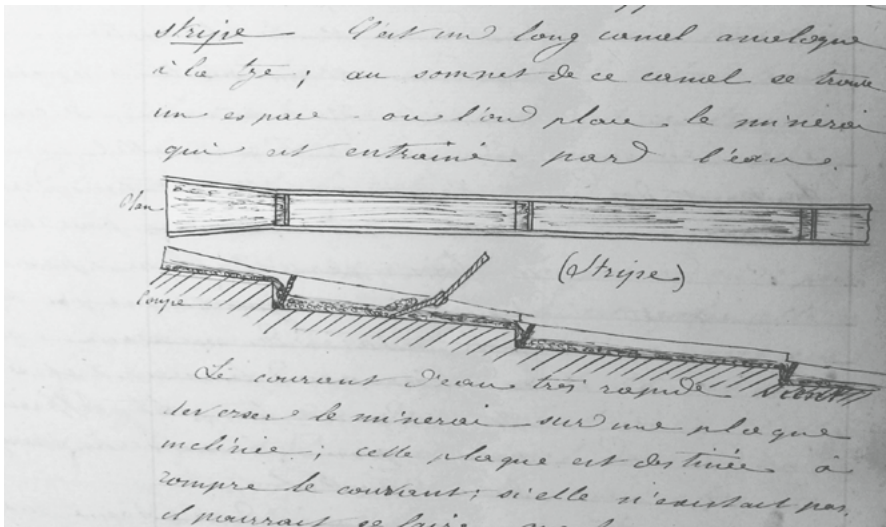 stripe C'est un long canal analogue
à la tye; au sommet de ce canal se trouve
un espace ou l'on place le minerai
qui est entrainé par l'eau.
Plan
(Stripe)
Coupe
Le courant d'eau très rapide vient
deverser le minerai sur une plaque
inclinée; cette plaque est destinée à
rompre le courant; si elle n'existait pas,
il pourrait se faire que